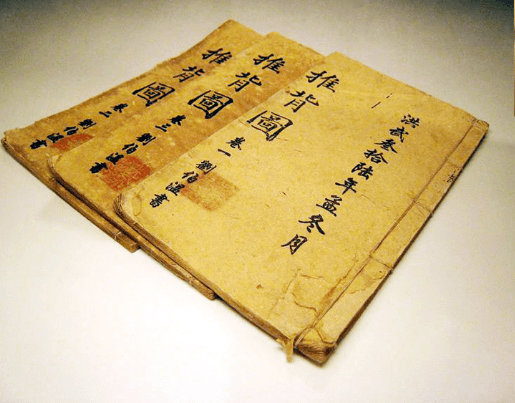 洪武叁拾陸年孟冬月
推背圖
卷一 劉伯溫書
推背圖
卷三 劉伯溫書
推背圖
卷二 劉伯溫書